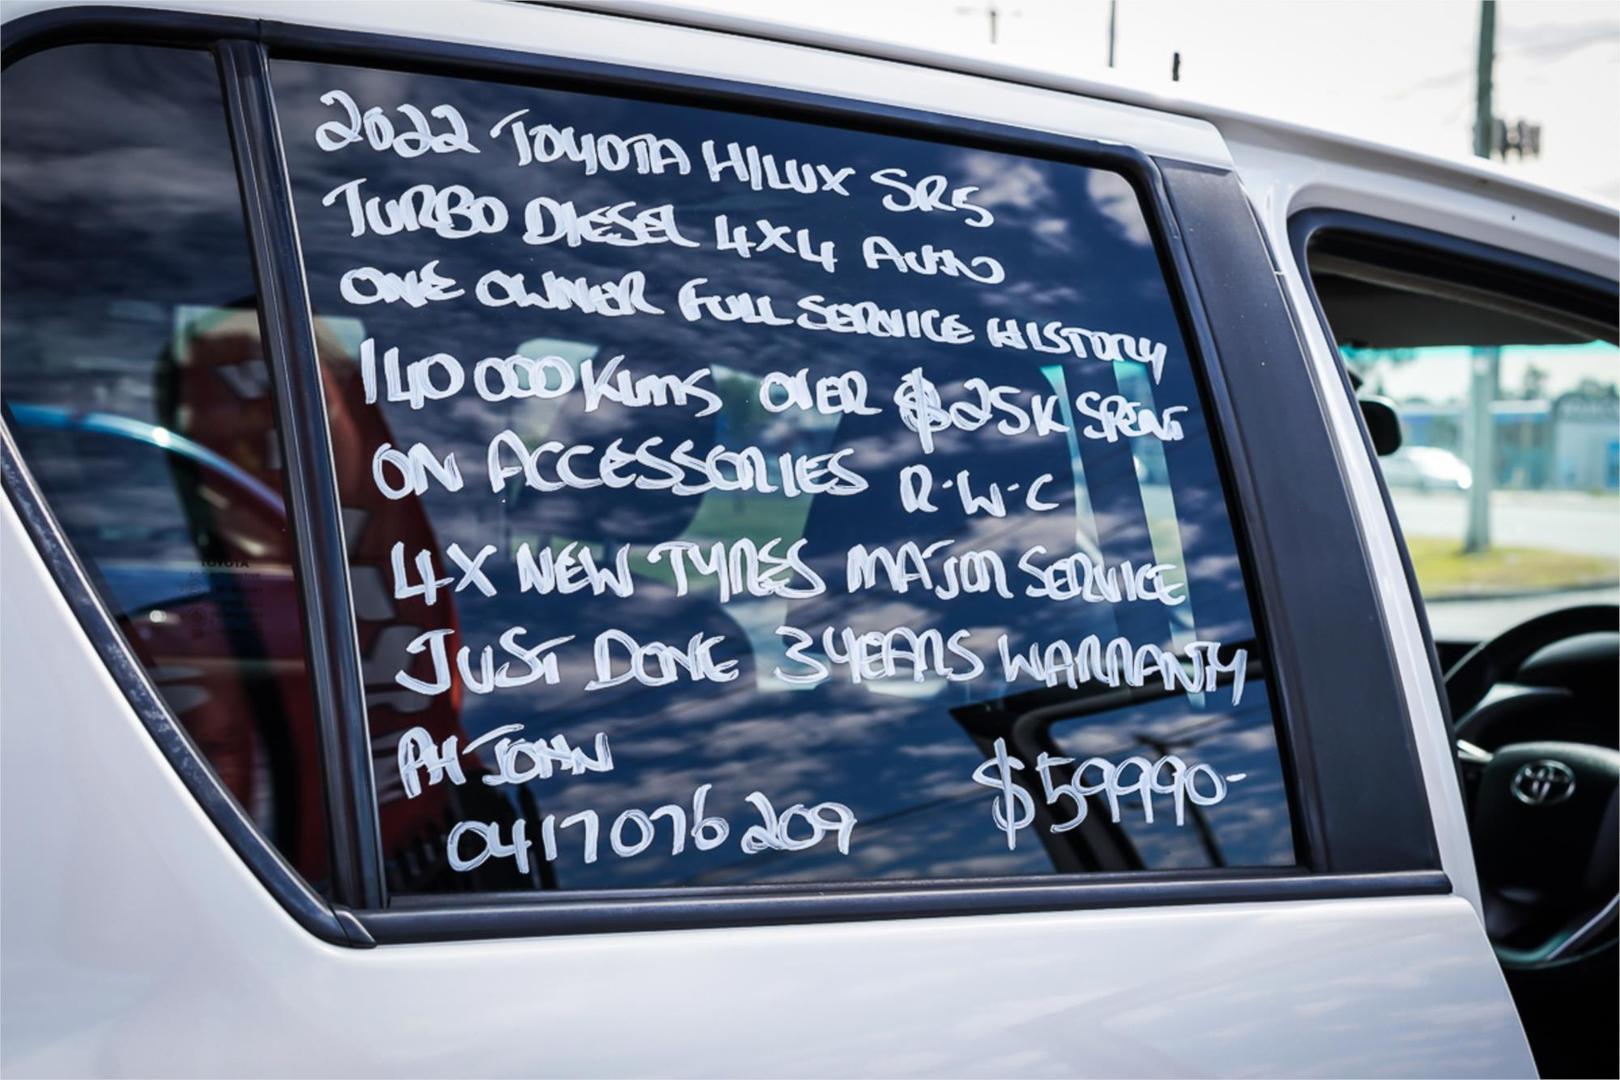 2022 TOYOTA HILUX SR5
TURBO DIESEL 4X4 AUTO
ONE OWNER FULL SERVICE HISTORY
140 000 Klms OVER $25K SPENT
ON ACCESSORIES R-W-C
4X NEW TYRES MAJOR SERVICE
JUST DONE 3 YEARS WARRANTY
PH JOHN
0417076209 $59990-
TOYOTA